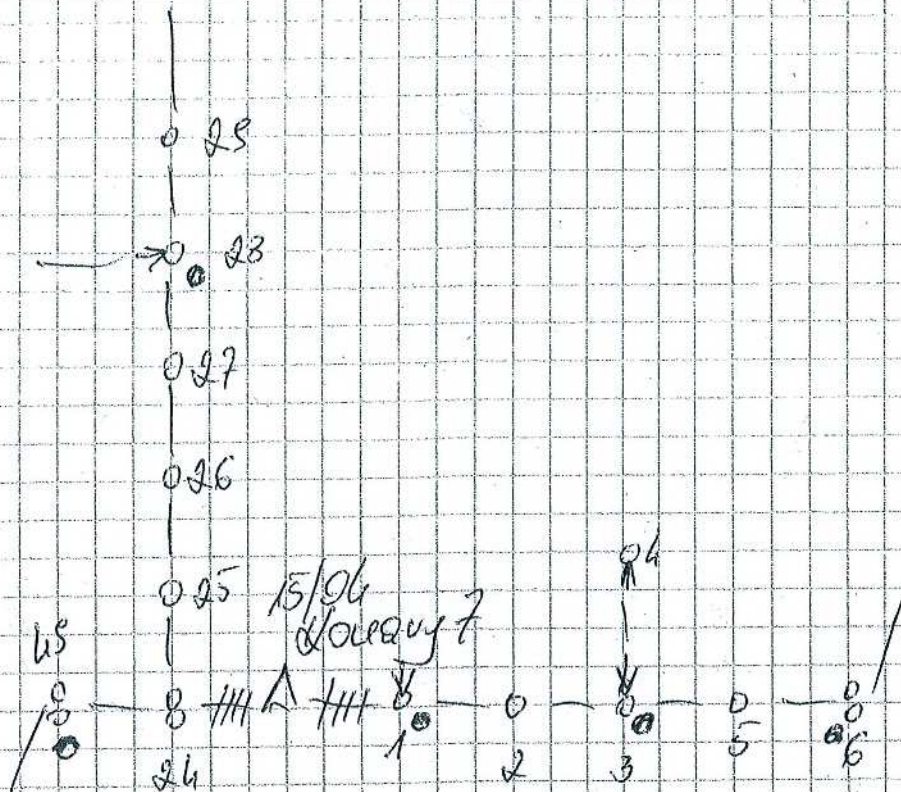 29
28
27
26
25
15/04
45
24
1
2
3
4
5
6